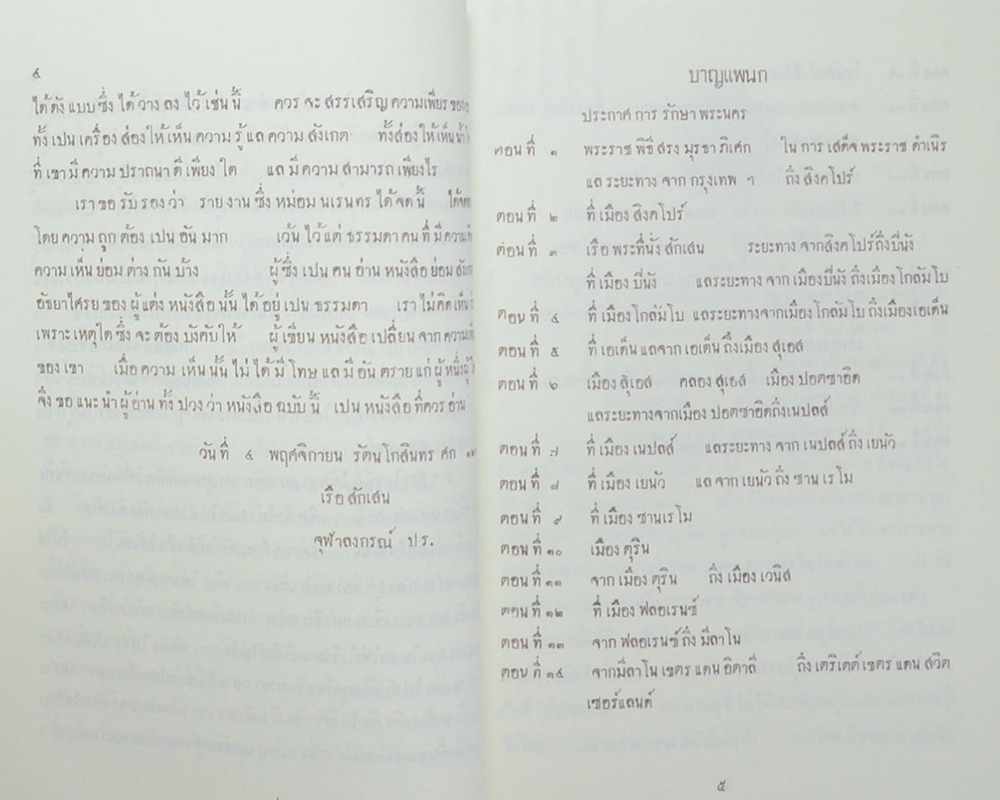 ๔
ได้ดังแบบซึ่งได้วางลงไว้เช่นนี้ ควรจะสรรเสริญความเพียรของ
ทั้งเปนเครื่องส่องให้เห็นความรู้แลความสังเกต ทั้งส่องให้เห็นน้ำ
ที่เขามีความปราถนาดีเพียงใด แลมีความสามารถเพียงไร
เราขอรับรองว่า รายงานซึ่งหม่อมนเรนทรได้จดนี้ ได้จด
โดยความถูกต้องเปนอันมาก เว้นไว้แต่ธรรมดาคนที่มีความคิด
ความเห็นย่อมต่างกันบ้าง ผู้ซึ่งเปนคนอ่านหนังสือย่อมสังเก
อัธยาไศรยของผู้แต่งหนังสือนั้นได้อยู่เปนธรรมดา เราไม่คิดเห็น
เพราะเหตุใดซึ่งจะต้องบังคับให้ ผู้เขียนหนังสือเปลี่ยนจากความเห็
ของเขา เมื่อความเห็นนั้นไม่ได้มีโทษแลมีอันตรายแก่ผู้หนึ่งผู้
จึงขอแนะนำผู้อ่านทั้งปวงว่าหนังสือฉบับนี้ เปนหนังสือที่ควรอ่าน
วันที่ ๔ พฤศจิกายน รัตนโกสินทรศก ๑
เรือจักเสน
จุฬาลงกรณ์ ปร.
บาญแพนก
ประกาศการรักษาพระนคร
ตอนที่ ๑ พระราชพิธีสรงมุรธาภิเศก ในการเสด็จพระราชดำเนิร
แลระยะทางจากกรุงเทพ ฯ ถึงสิงคโปร์
ตอนที่ ๒ ที่เมืองสิงคโปร์
ตอนที่ ๓ เรือพระที่นั่งสักเสน ระยะทางจากสิงคโปร์ถึงปีนัง
ที่เมืองปีนัง แลระยะทางจากเมืองปีนังถึงเมืองโกลัมโบ
ตอนที่ ๔ ที่เมืองโกลัมโบ แลระยะทางจากเมืองโกลัมโบถึงเมืองเอเด็น
ตอนที่ ๕ ที่เอเด็นแลจากเอเด็นถึงเมืองสุเอส
ตอนที่ ๖ เมืองสุเอส คลองสุเอส เมืองปอตซาอิด
แลระยะทางจากเมืองปอตซาอิดถึงเนปลส์
ตอนที่ ๗ ที่เมืองเนปลส์ แลระยะทางจากเนปลส์ถึงเยนัว
ตอนที่ ๘ ที่เมืองเยนัว แลจากเยนัวถึงซานเรโม
ตอนที่ ๙ ที่เมืองซานเรโม
ตอนที่ ๑๐ เมืองตุริน
ตอนที่ ๑๑ จากเมืองตุริน ถึงเมืองเวนิส
ตอนที่ ๑๒ ที่เมืองฟลอเรนซ์
ตอนที่ ๑๓ จากฟลอเรนซ์ถึงมีลาโน
ตอนที่ ๑๔ จากมีลาโนเขตรแดนอิตาลี ถึงเตริเตต์เขตรแดนสวิต
เซอร์แลนด์
๕